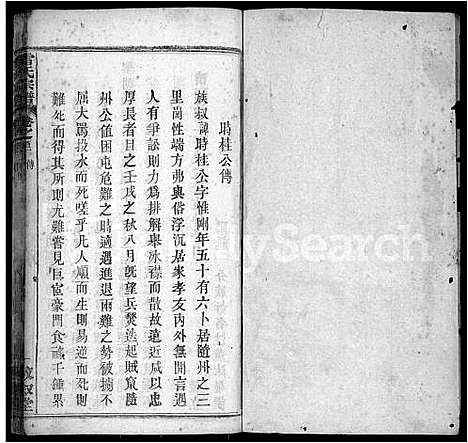 時桂公傳
族叔諱時桂公字惟剛年五十有六卜居隨州之三
里崗性端方弗與俗浮沉居家孝友內外無閒言遇
人有爭訟則力為排解舉冰襟而散故遠近咸以忠
厚長者目之壬戌之秋八月旣望兵燹迭起賊竄隨
州公值困危艱難之時適遇進退之勢被擄不
屈大罵投水而死嗟乎凡人順而生則易逆而死則
難死而得其所則尤難嘗見巨宦豪門食祿千鍾果
氏宗譜
傳
敘堂